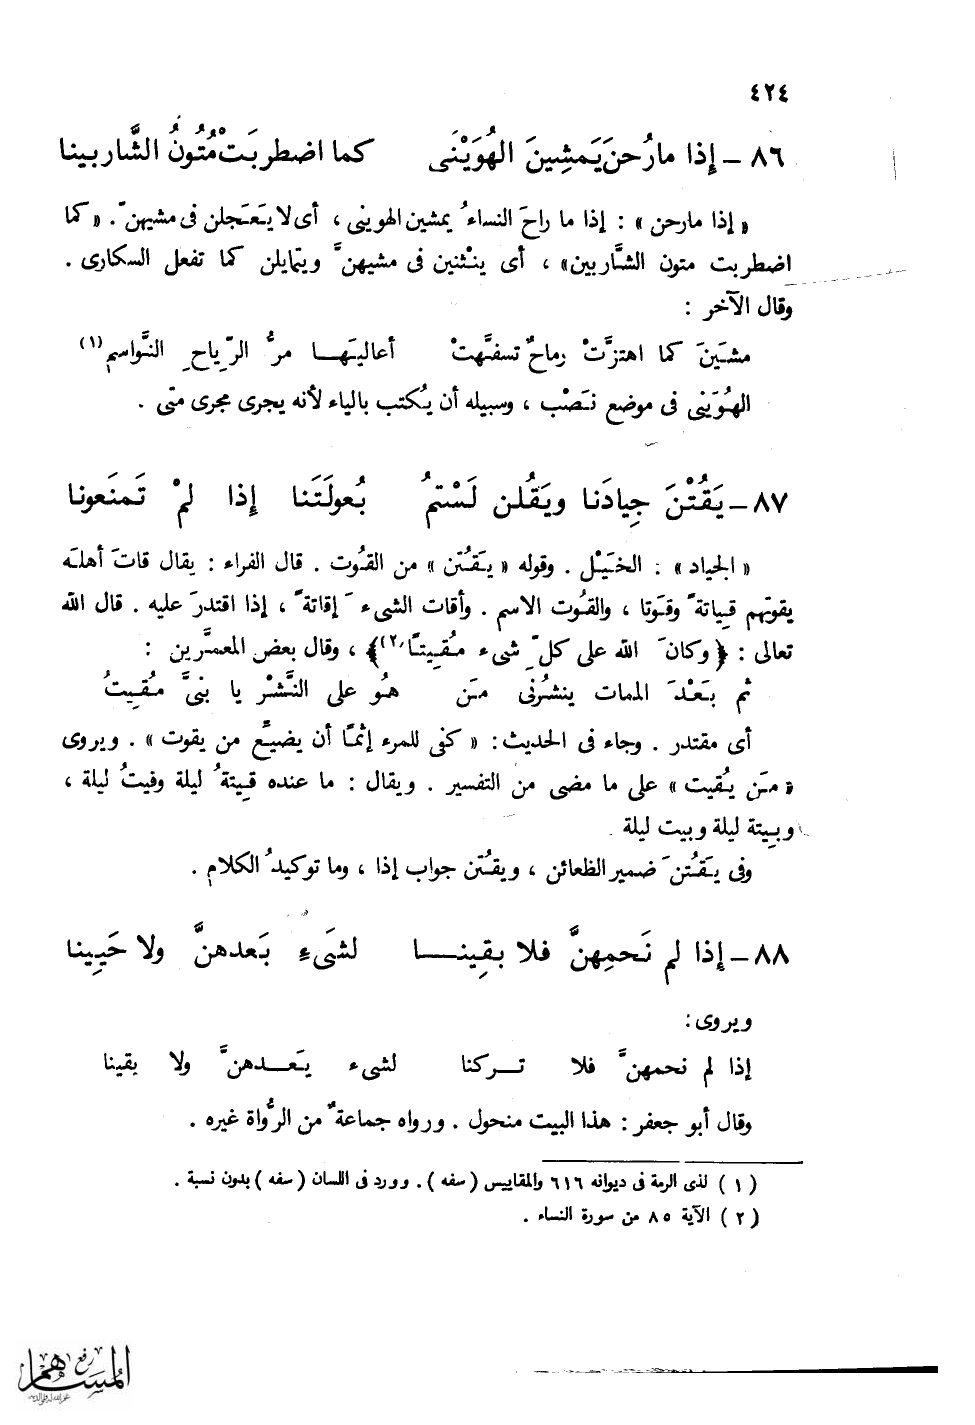 ٤٢٤
٨٦ – إِذا مارُحنَ يَمشِينَ الهُوَيْنَى كما اضطربَتْ مُتُونُ الشَّاربينا
« إذا مارحن » : إذا ما راحَ النساءُ يمشين الهوينى ، أى لا يَعجلن فى مشيهنّ . « كما
اضطربت متون الشَّاربين » ، أى ينْثنين فى مشيهنَّ ويتمايلن كما تفعل السكارى .
وقال الآخر :
مشَينَ كما اهتزَّتْ رماحٌ تسفَّهتْ أعاليَهـا مرُّ الرِّياحِ النَّواسمِ(١)
الهُوَينى فى موضع نَصْب ، وسبيله أن يُكتب بالياء لأنه يجرى مجرى متى .
٨٧ – يَقُتْنَ جِيادَنا ويَقُلن لَسْتمُ بُعولَتَنا إِذا لمْ تَمنَعونا
« الجياد » : الخَيْل . وقوله « يَقُتن » من القُوت . قال الفراء : يقال قاتَ أهلَه
يقوتهم قِياتةً وقَوتا ، والقُوت الاسم . وأقات الشىءَ إقاتةً ، إذا اقتدرَ عليه . قال الله
تعالى : ﴿ وكانَ الله على كلِّ شىء مُقِيتًا(٢)﴾ ، وقال بعض المعمَّرين :
ثم بَعْدَ الممات ينشُرُنى مَن هُو على النَّشْر يا بنىَّ مُقِيتُ
أى مقتدر . وجاء فى الحديث : « كفى للمرء إثمًا أن يضيِّع من يقوت » . ويروى
« مَن يُقيت » على ما مضى من التفسير . ويقال : ما عنده قِيتةُ ليلة وقيتُ ليلة ،
وبِيتة ليلة وبيت ليلة .
وفى يَقُتنَ ضمير الظعائن ، ويقُتن جواب إذا ، وما توكيدُ الكلام .
٨٨ – إِذا لم نَحمِهنَّ فلا بقِينـــا لشىءٍ بَعدهنَّ ولا حَيِينا
ويروى :
إذا لم نحمهنَّ فلا تــركنا لشىء بَعــدهنَّ ولا بقينا
وقال أبو جعفر : هذا البيت منحول . ورواه جماعةٌ من الرُّواة غيره .
( ١ ) لذى الرمة فى ديوانه ٦١٦ والمقاييس ( سفه ) . وورد فى اللسان ( سفه ) بدون نسبة .
( ٢ ) الآية ٨٥ من سورة النساء .
رفع
المساهم